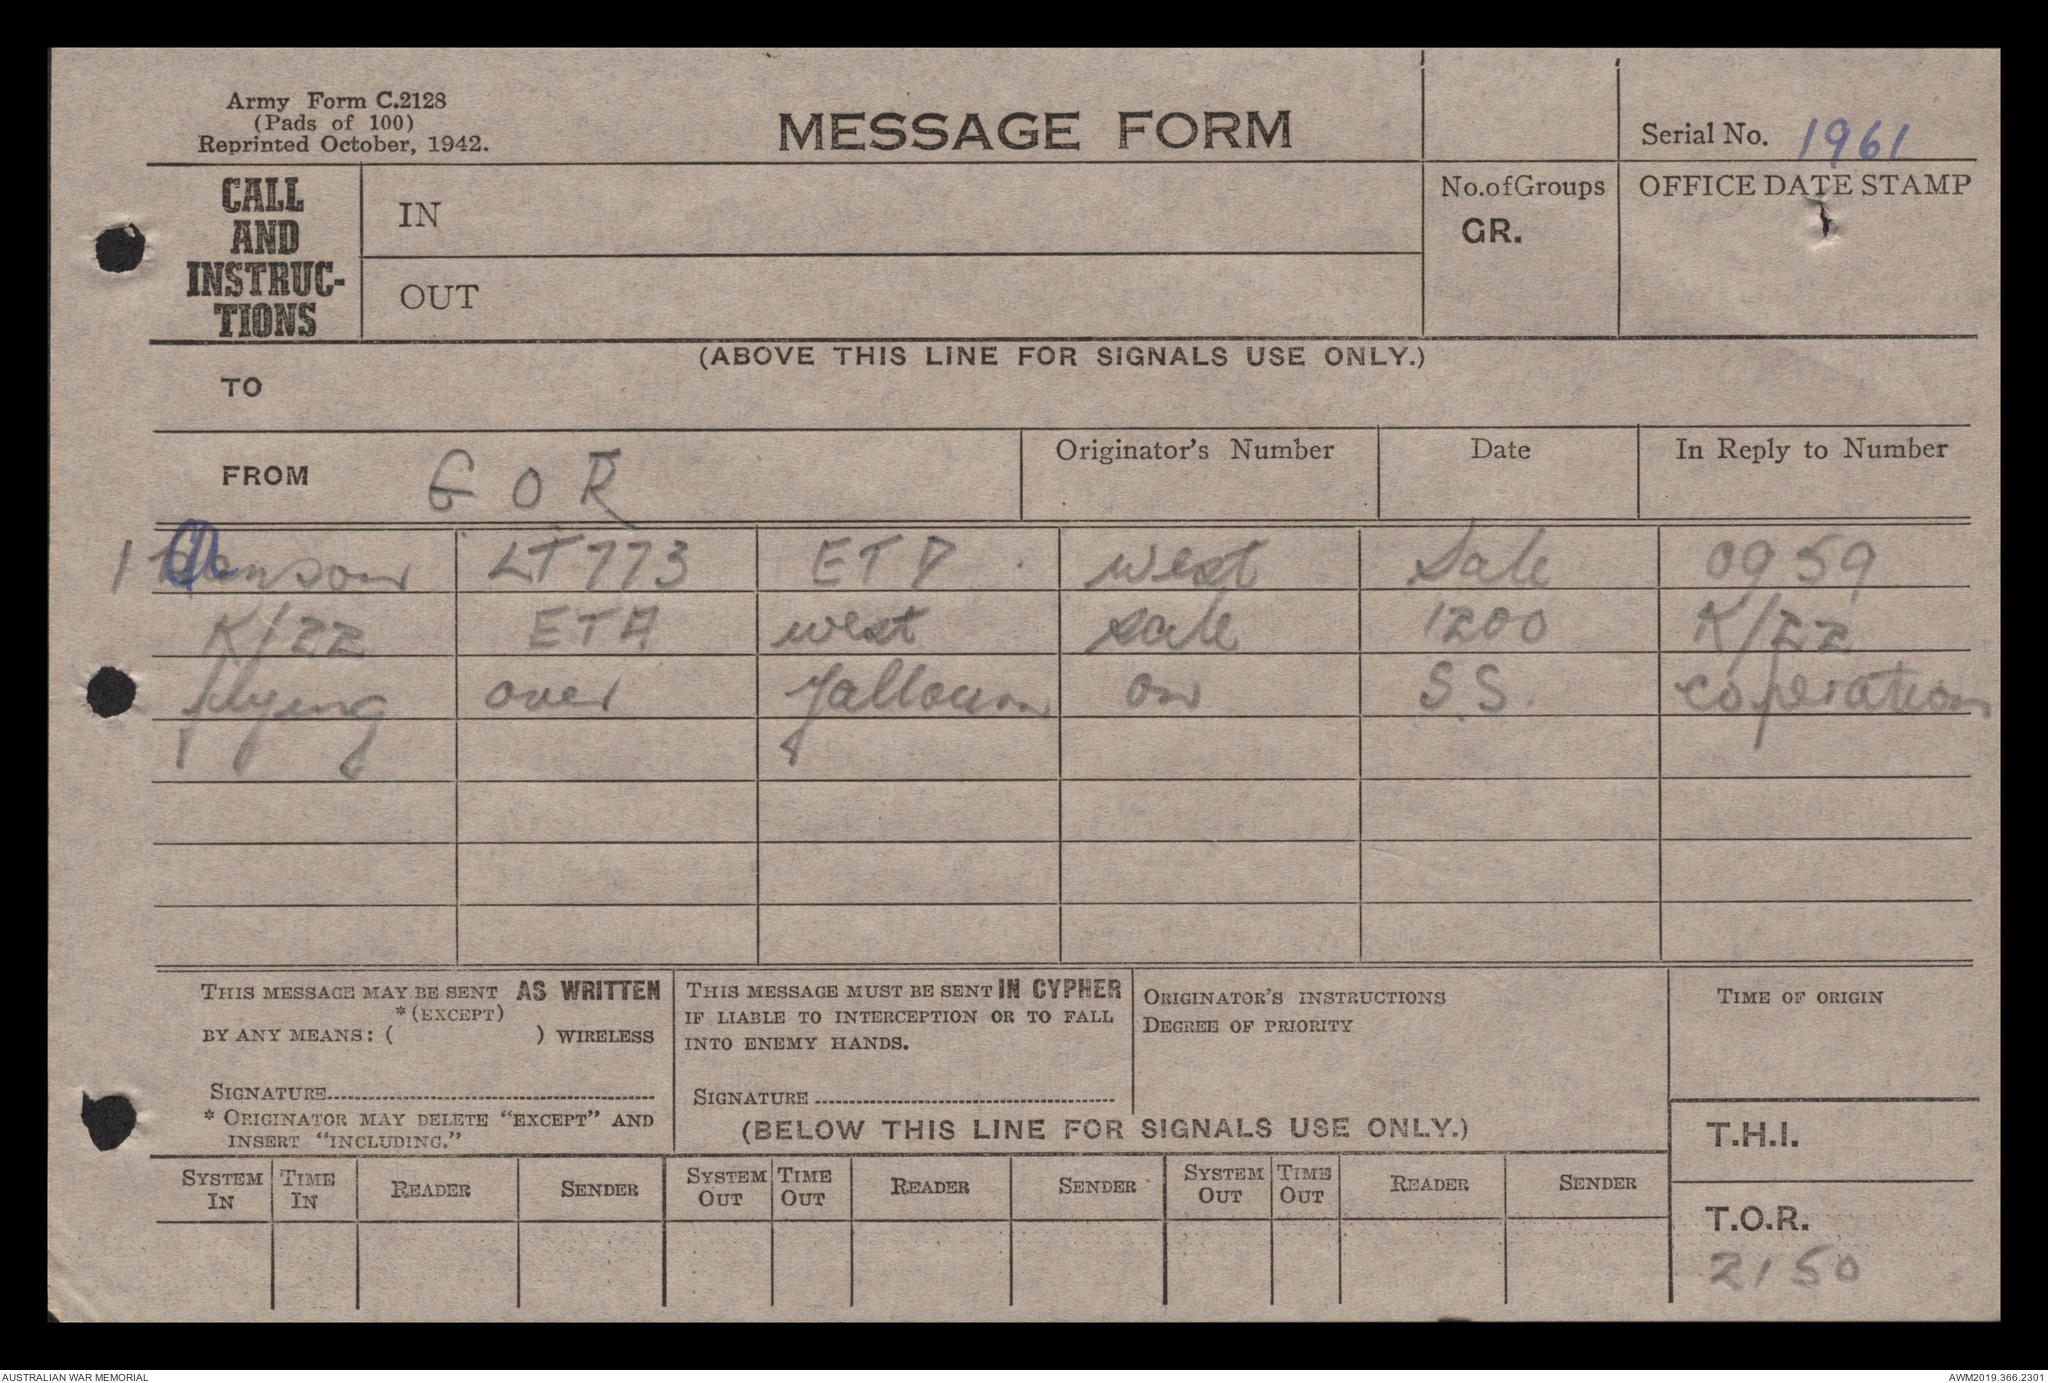 Army Form C.2128
(Pads of 100)
Reprinted October, 1942.
MESSAGE FORM
Serial No. 1961
CALL AND INSTRUC-TIONS
IN
OUT
No. of Groups
GR.
OFFICE DATE STAMP
(ABOVE THIS LINE FOR SIGNALS USE ONLY.)
TO
FROM G O R
Originator's Number
Date
In Reply to Number
1 Anson LT773 ETD west Sale 0959
K/ZZ ETA west sale 1200 K/ZZ
flying over Yallourn on S.S. coperation
THIS MESSAGE MAY BE SENT AS WRITTEN
*(EXCEPT)
BY ANY MEANS: ( ) WIRELESS
SIGNATURE
* ORIGINATOR MAY DELETE "EXCEPT" AND
INSERT "INCLUDING."
THIS MESSAGE MUST BE SENT IN CYPHER
IF LIABLE TO INTERCEPTION OR TO FALL
INTO ENEMY HANDS.
SIGNATURE
ORIGINATOR'S INSTRUCTIONS
DEGREE OF PRIORITY
TIME OF ORIGIN
(BELOW THIS LINE FOR SIGNALS USE ONLY.)
T.H.I.
SYSTEM IN TIME IN READER SENDER SYSTEM OUT TIME OUT READER SENDER SYSTEM OUT TIME OUT READER SENDER
T.O.R.
2150
AUSTRALIAN WAR MEMORIAL
AWM2019.366.2301